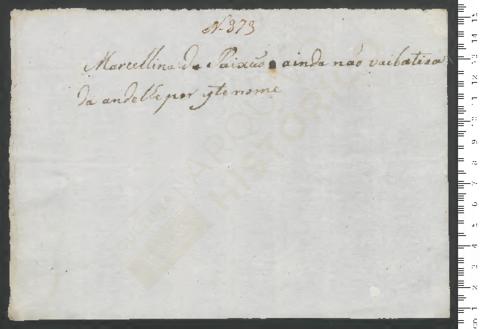 N. 373
Marcellina da Paixão ainda não vai batiza
da andelhe por este nome